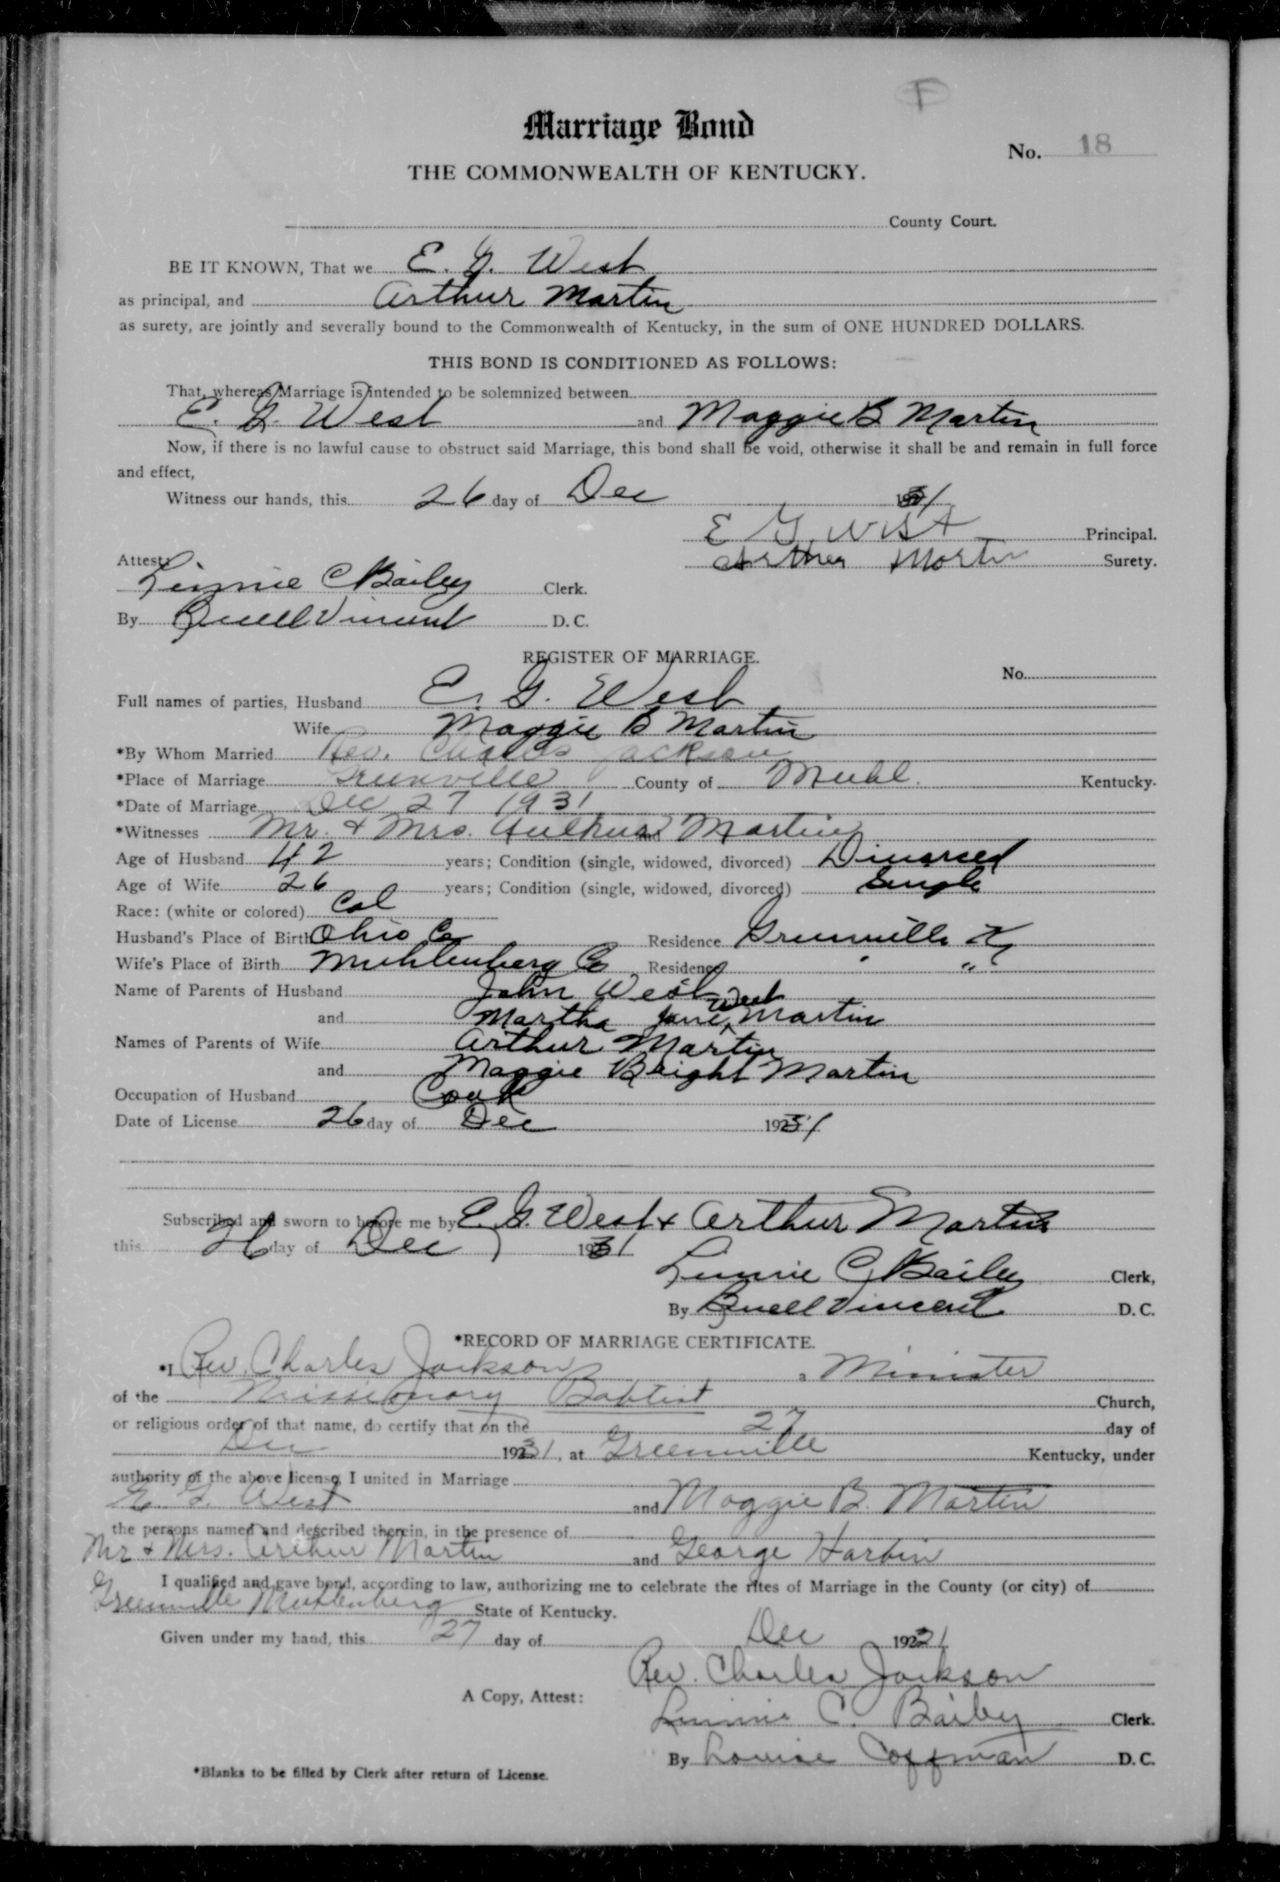 F
Marriage Bond
No. 18
THE COMMONWEALTH OF KENTUCKY.
County Court.
BE IT KNOWN, That we E. G. West
as principal, and Arthur Martin
as surety, are jointly and severally bound to the Commonwealth of Kentucky, in the sum of ONE HUNDRED DOLLARS.
THIS BOND IS CONDITIONED AS FOLLOWS:
That, whereas Marriage is intended to be solemnized between
E. G. West and Maggie B Martin
Now, if there is no lawful cause to obstruct said Marriage, this bond shall be void, otherwise it shall be and remain in full force
and effect,
Witness our hands, this 26 day of Dec 1931
E G West Principal.
Arther Martin Surety.
Attest:
Linnie C Bailey Clerk.
By Buell Vincent D. C.
REGISTER OF MARRIAGE.
No.
Full names of parties, Husband E. G. West
Wife Maggie B Martin
*By Whom Married Rev. Charles Jackson
*Place of Marriage Greenville County of Muhl. Kentucky.
*Date of Marriage Dec 27 1931
*Witnesses Mr. & Mrs. Authur and Martin
Age of Husband 42 years; Condition (single, widowed, divorced) Divorced
Age of Wife 26 years; Condition (single, widowed, divorced) Single
Race: (white or colored) Col
Husband's Place of Birth Ohio Co Residence Greenville Ky
Wife's Place of Birth Muhlenberg Co Residence " "
Name of Parents of Husband John West
and Martha Jane West Martin
Names of Parents of Wife Arthur Martin
and Maggie Bright Martin
Occupation of Husband Cook
Date of License 26 day of Dec 1931
Subscribed and sworn to before me by E. G. West & Arthur Martin
this 26 day of Dec 1931
Linnie C Bailey Clerk,
By Buell Vincent D. C.
*RECORD OF MARRIAGE CERTIFICATE.
*I Rev. Charles Jackson, a Minister
of the Missionary Baptist Church,
or religious order of that name, do certify that on the 27 day of
Dec 1931, at Greenville Kentucky, under
authority of the above license, I united in Marriage
E. G. West and Maggie B. Martin
the persons named and described therein, in the presence of
Mr & Mrs. Arthur Martin and George Harbin
I qualified and gave bond, according to law, authorizing me to celebrate the rites of Marriage in the County (or city) of
Greenville Muhlenberg State of Kentucky.
Given under my hand, this 27 day of Dec 1931
Rev. Charles Jackson
A Copy, Attest:
Linnie C. Bailey Clerk.
By Louise Coffman D. C.
*Blanks to be filled by Clerk after return of License.